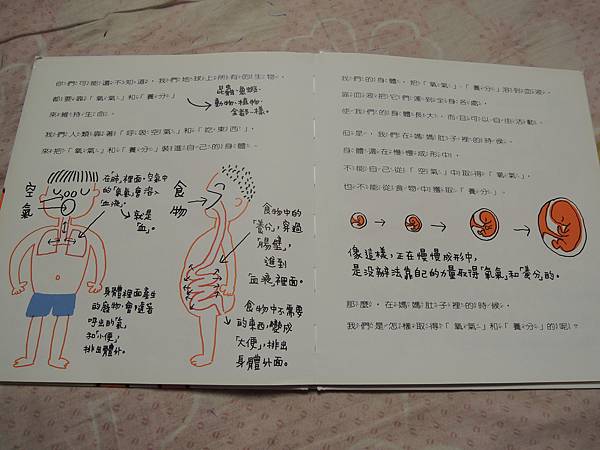 你們可能還不知道，我們地球上所有的生物，
都要靠「氧氣」和「養分」
來維持生命。
昆蟲、魚蝦、
動物、植物，
全都一樣。
我們人類靠著「呼吸空氣」和「吃東西」，
來把「氧氣」和「養分」裝進自己的身體。
空氣
在肺裡面，空氣中
的「氧氣」會溶入
「血液」。
就是
「血」。
身體裡面產生
的廢物，會隨著
呼出的氣
和「小便」，
排出體外。
食物
食物中的
「養分」，穿過
「腸壁」，
進到
「血液」裡面。
食物中不需要
的東西，變成
「大便」，排出
身體外面。
我們的身體，把「氧氣」、「養分」溶到血液，
靠血液把它們運到全身各處，
使我們的身體長大，而且可以自由活動。
但是，我們在媽媽肚子裡的時候，
身體還在慢慢成形中，
不能自己從「空氣」中取得「氧氣」，
也不能從食物中獲取「養分」。
像這樣，正在慢慢成形中，
是沒辦法靠自己的力量取得「氧氣」和「養分」的。
那麼，在媽媽肚子裡的時候，
我們是怎樣取得「氧氣」和「養分」的呢？